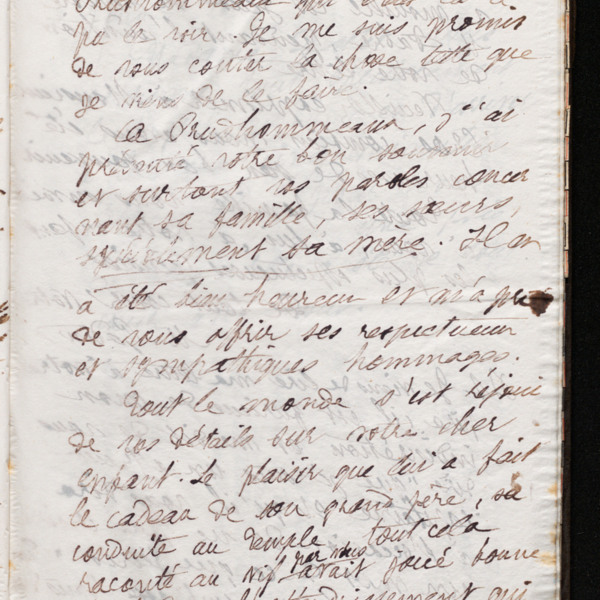 pu le voir. Je me suis promis
de vous conter la chose telle que
je viens de le faire.
A Prudhommeaux, j'ai
présenté votre bon souvenir
et surtout vos paroles concer
nant sa famille, ses sœurs,
spécialement sa mère. Il en
a été bien heureux et m'a prié
de vous offrir ses respectueux
et sympathiques hommages.
Tout le monde s'est réjoui
de vos détails sur votre cher
enfant. Le plaisir que lui a fait
le cadeau de son grand père, sa
conduite au temple tout cela
raconté au vif par vous avait joué bonne